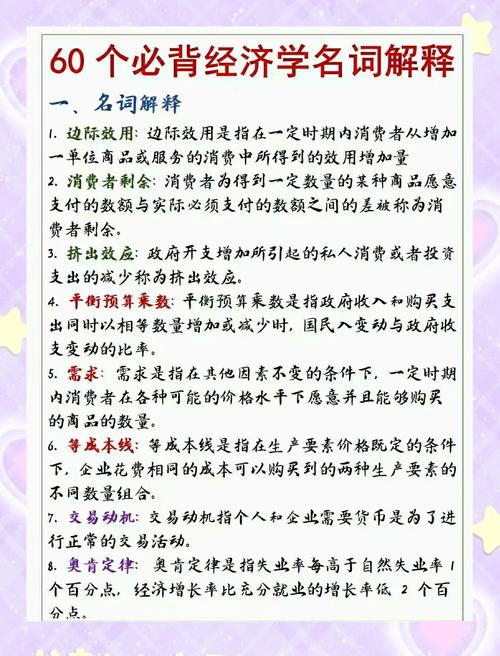 60个必背经济学名词解释
一、名词解释
1. 边际效用：边际效用是指在一定时期内消费者从增加
一单位商品或服务的消费中所得到的效用增加量
2. 消费者剩余：消费者为得到一定数量的某种商品愿意
支付的数额与实际必须支付的数额之间的差被称为消
费者剩余。
3. 挤出效应：政府开支增加所引起的私人消费或者投资
支出的减少称为挤出效应。
4. 平衡预算乘数：平衡预算乘数是指政府收入和购买支
出同时以相等数量增加或减少时，国民入变动与政府收
支变动的比率。
5. 需求：需求是指在其他因素不变的条件下，一定时期
内消费者在各种可能的价格水平下愿意并且能够购买
的商品的数量。
6. 等成本线：等成本线是指在生产要素价格既定的条件
下，企业花费相同的成本可以购买到的两种生产要素的
不同数量组合。
7. 交易动机：交易动机指个人和企业需要货币是为了进
行正常的交易活动。
8. 奥肯定律：奥肯定律是指失业率每高于自然失业率1
个百分点，经济增长率比充分就业的增长率低 2 个百
分点。